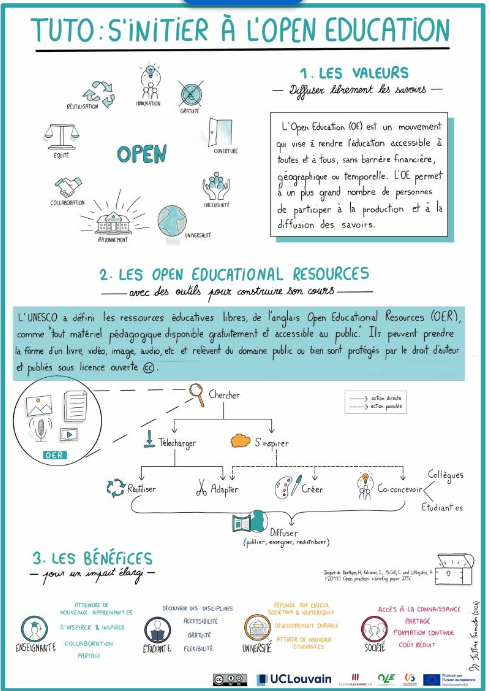 TUTO : S'INITIER À L'OPEN EDUCATION
1. LES VALEURS
Diffuser librement les savoirs
RÉUTILISATION
INNOVATION
GRATUITÉ
ÉQUITÉ
OPEN
OUVERTURE
COLLABORATION
INCLUSIVITÉ
RAYONNEMENT
UNIVERSALITÉ
L'Open Education (OE) est un mouvement
qui vise à rendre l'éducation accessible à
toutes et à tous, sans barrière financière,
géographique ou temporelle. L'OE permet
à un plus grand nombre de personnes
de participer à la production et à la
diffusion des savoirs.
2. LES OPEN EDUCATIONAL RESOURCES
avec des outils pour construire son cours
L'UNESCO a défini les ressources éducatives libres, de l'anglais Open Educational Resources (OER),
comme "tout matériel pédagogique disponible gratuitement et accessible au public." Ils peuvent prendre
la forme d'un livre, vidéo, image, audio, etc et relèvent du domaine public ou bien sont protégés par le droit d'auteur
et publiés sous licence ouverte (cc).
OER
Chercher
action directe
action possible
Télécharger
S'inspirer
Réutiliser
Adapter
Créer
Co-concevoir
Collègues
Etudiant·es
Diffuser
(publier, enseigner, redistribuer)
3. LES BÉNÉFICES
pour un impact élargi
ENSEIGNANT·E
ATTEINDRE DE
NOUVEAUX APPRENANT·ES
S'INSPIRER & INSPIRER
COLLABORATION
PARTAGE
ÉTUDIANT·E
DÉCOUVRIR DES DISCIPLINES
ACCESSIBILITÉ
GRATUITÉ
FLEXIBILITÉ
UNIVERSITÉ
RÉPONSE AUX ENJEUX
SOCIÉTAUX & NUMÉRIQUES
DÉVELOPPEMENT DURABLE
ATTIRER DE NOUVEAUX
ÉTUDIANTS
SOCIÉTÉ
ACCÈS À LA CONNAISSANCE
PARTAGE
FORMATION CONTINUE
COÛT RÉDUIT
UCLouvain
Financé par
l'Union européenne